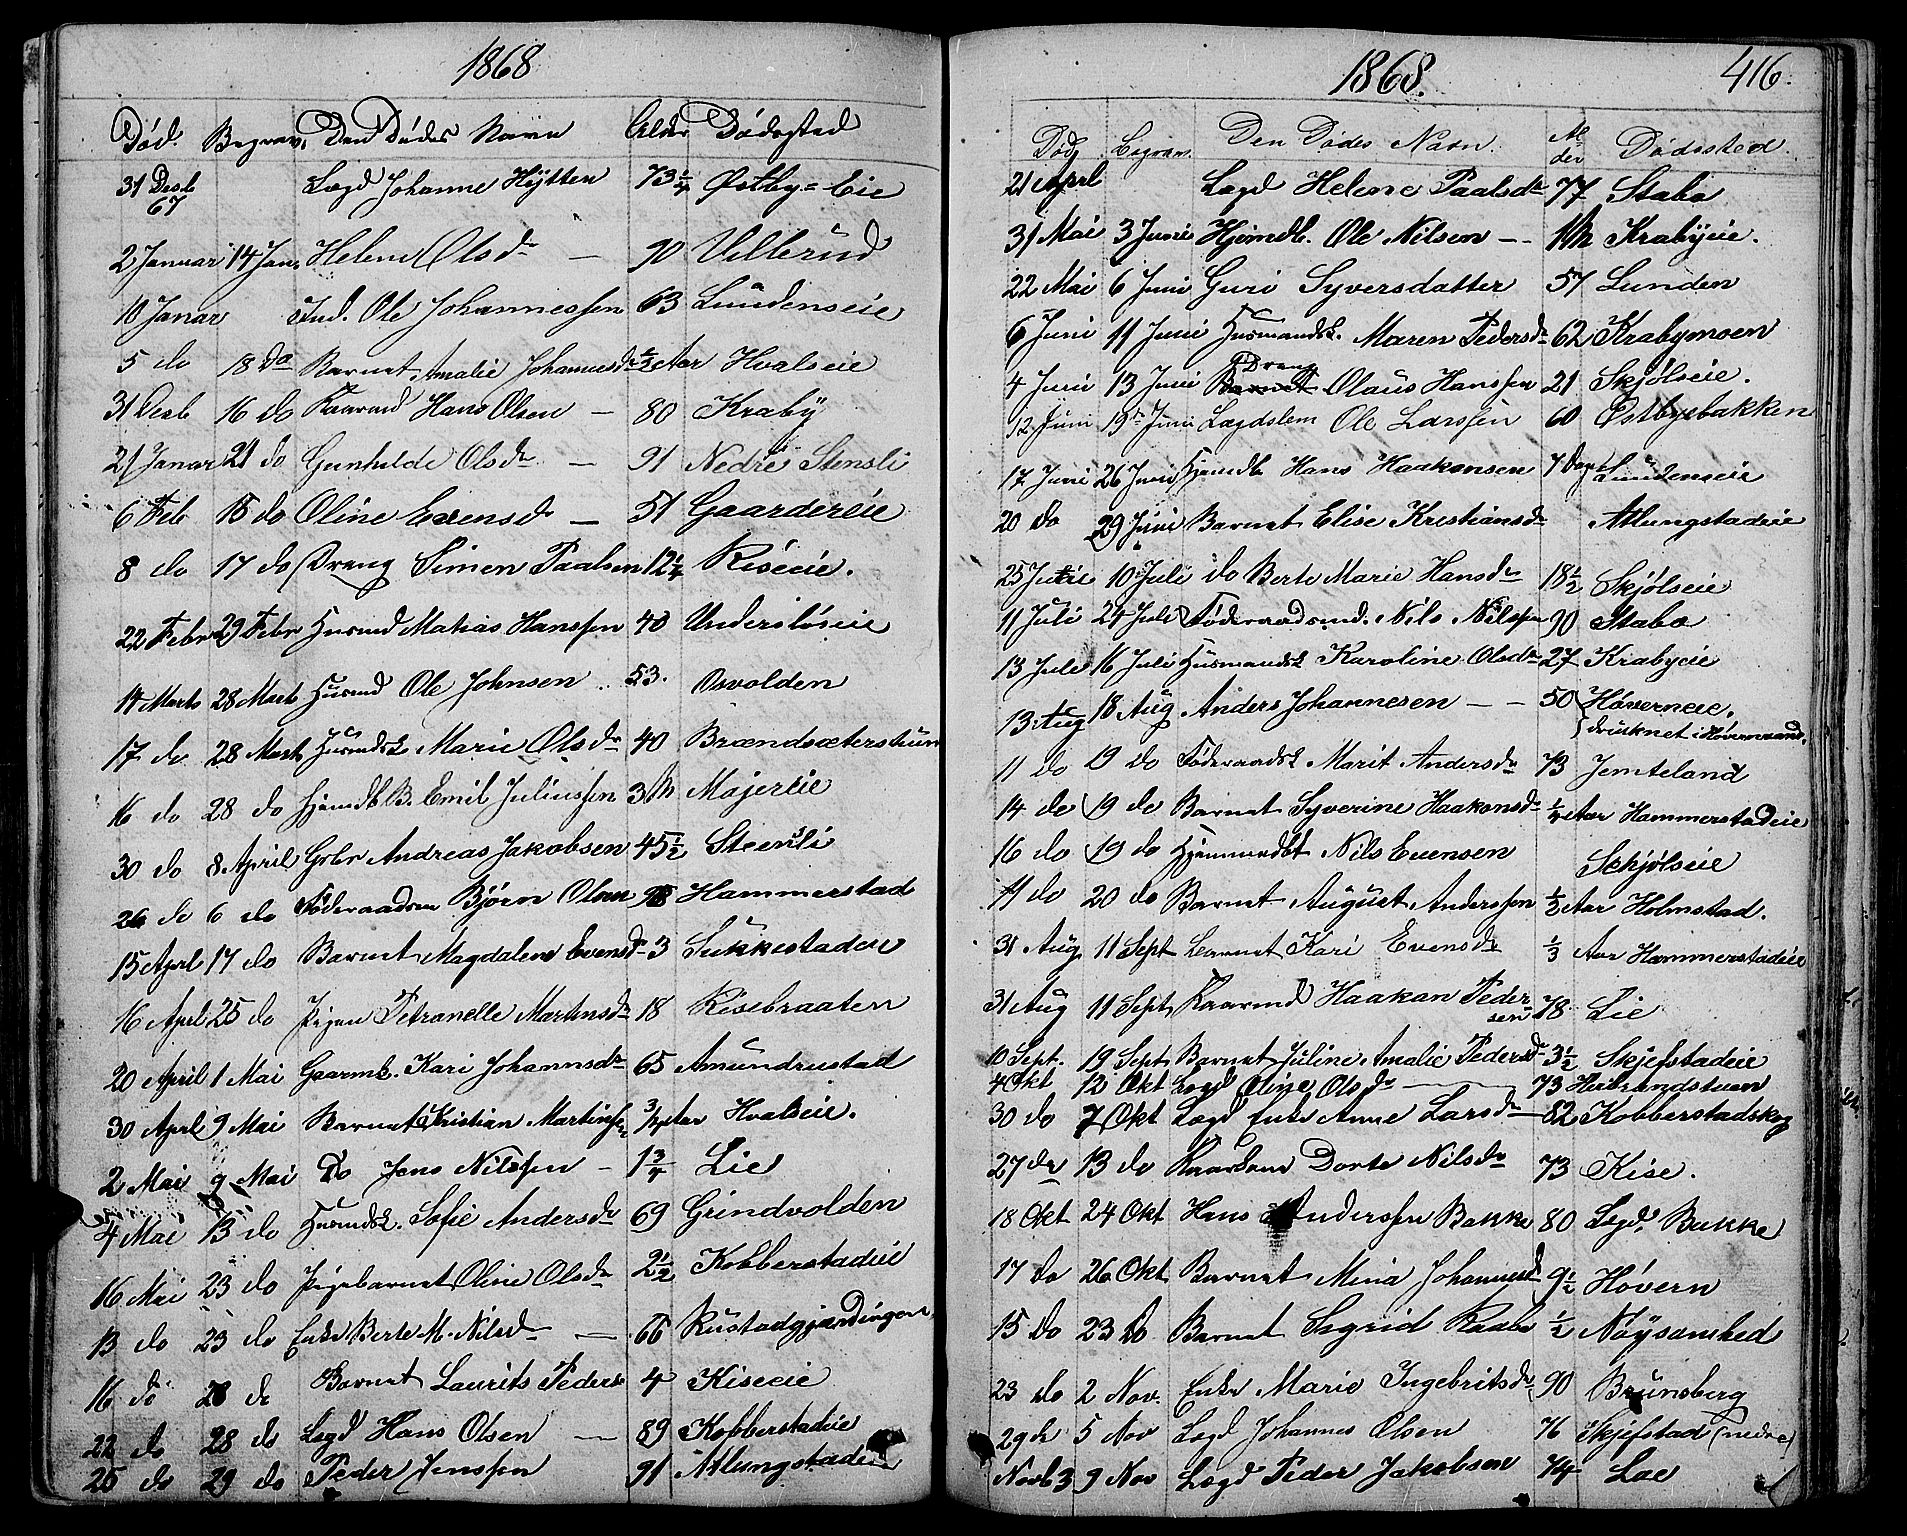 1868
Död. Begrav. Den Dödes Navn Alder Dödssted
31 Desb 67 Lægd Johanne Hytten 73 1/4 Østby=Eie
2 Januar 14 Jan. Helene Olsdr — 90 Ullerud
10 Janar Ind. Ole Johannessen 63 Lundenseie
5 do 18 do Barnet Amalie Johannesdr 1/2 Aar Hvalseie
31 Desb 16 do Kaarmd Hans Olsen — 80 Kraby
21 Janar 21 do Gunhilde Olsdr — 91 Nedre Stensli
6 Feb 15 do Oline Evensdr — 51 Gaardereie
8 do 17 do Dreng Simen Paalsen 12 1/4 Riseeie.
22 Febr 29 Febr Husmd Matias Hanssen 40 Undersløseie
14 Marts 28 Marts Husmd Ole Johnsen 53. Osvolden
17 do 28 Marts Husmdsk Marie Olsdr 40 Brændsæterstuen
16 do 28 do Hjemdb B. Emil Juliussen 3 M Majereie
30 do 8 April Grbr Andreas Jakobsen 45 1/2 Stensli
26 do 6 do Föderaadsm Bjørn Olsen 98 Hammerstad
15 Aprl 17 do Barnet Magdalene Evensdr 3 Sukkestadeie
16 Aprl 25 do Pigen Petronelle Martinsdr 18 Risebraaten
20 April 1 Mai Gaarmk. Kari Johannsdr 65 Amundrustad
30 April 9 Mai Barnet Kristian Martinsen 3/4 Aar Hvalseie.
2 Mai 9 Mai Do Jens Nilssen — 1 3/4 Lie
4 Mai 13 do Husmdsk. Sofie Andersdr 69 Grindvolden
16 Mai 23 do Pigebarnet Oline Olsdr 2 1/2 Kobberstadeie
13 do 23 do Enke Berte M. Nilsdr — 66 Rustadgjærdingen
16 do 28 do Barnet Laurits Peders 4 Kiseeie
22 do 28 do Legd Hans Olsen — 89 Kobberstadeie
25 do 29 do Peder Jenssen 91 Atlungstadeie
1868. 416.
Död Begrav. Den Dödes Navn. Alder Dödssted.
21 Aprl Lægd Helene Paalsdr 77 Stabo
31 Mai 3 Juni Hjemdb. Ole Nilsen — - 1 M Krabyeie.
22 Mai 6 Juni Guri Syversdatter 57 Lunden
6 Juni 11 Juni Husmandsk. Maren Pedersdr 62 Krabymoen
4 Juni 13 Juni Barnet Dreng Olaus Hanssen 21 Skjølseie.
12 Juni 19de Juni Lægdslem Ole Larssen 60 Østbyebakken
17 Juni 26 Juni Hjemdb Hans Haakonsen 7 Dage Lundenseie
20 do 29 Juni Barnet Elise Kristiansdr Atlungstadeie
25 Juni 10 Juli do Berte Marie Hansdr 18 1/2 Skjølseie
11 Juli 24 Juli Föderaadsmd. Nils Nilssen 90 Stabo
13 Juli 16 Juli Husmandsk Karoline Olsdr 27 Krabyeie
13 Aug 18 Aug Anders Johannesen — - 50 Høverneie. druknet i Høvernvand.
11 do 19 do Föderaadsk Marit Andersdr 73 Jemteland
14 do 19 do Barnet Syverine Haakonsdr 1/4 Aar Hammerstadeie
16 do 19 do Nils Evensen Schjølseie
11 do 20 do Barnet August Anderssen 1/2 Aar Holmstad.
31 Aug 11 Sept Barnet Kari Evensdr 1/3 Aar Hammerstadeie
31 Aug 11 Sept Kaarmd Haakan Pedersen 78 Lie
10 Sept. 19 Sept Barnet Juline Amalie Pedersd 3 1/2 Skjefstadeie
4 Okt 12 Okt Legd Oline Olsdr — 73 Herbrandstuen
30 do 7 Okt Lægd Enke Anne Larsdr — 82 Kobberstadskog
27 do 13 do Kaarkone Dorte Nilsdr 73 Kise.
18 Okt 24 Okt Hans Anderssen Bakke 80 Legd. Bakke
17 do 26 Okt Barnet Mina Johannesd 9 1/2 Høvern
15 do 23 do Barnet Sigrid Raabe 1/2 Nøysomhed
23 do 2 Nov. Enke Marie Ingebritsdr 90 Brunsberg
29 do 5 Nov Lægd Johannes Olsen 76 Skjefstad (nedre)
Novb 3 9 Nov Lægd Peder Jakobsen 74 Loe